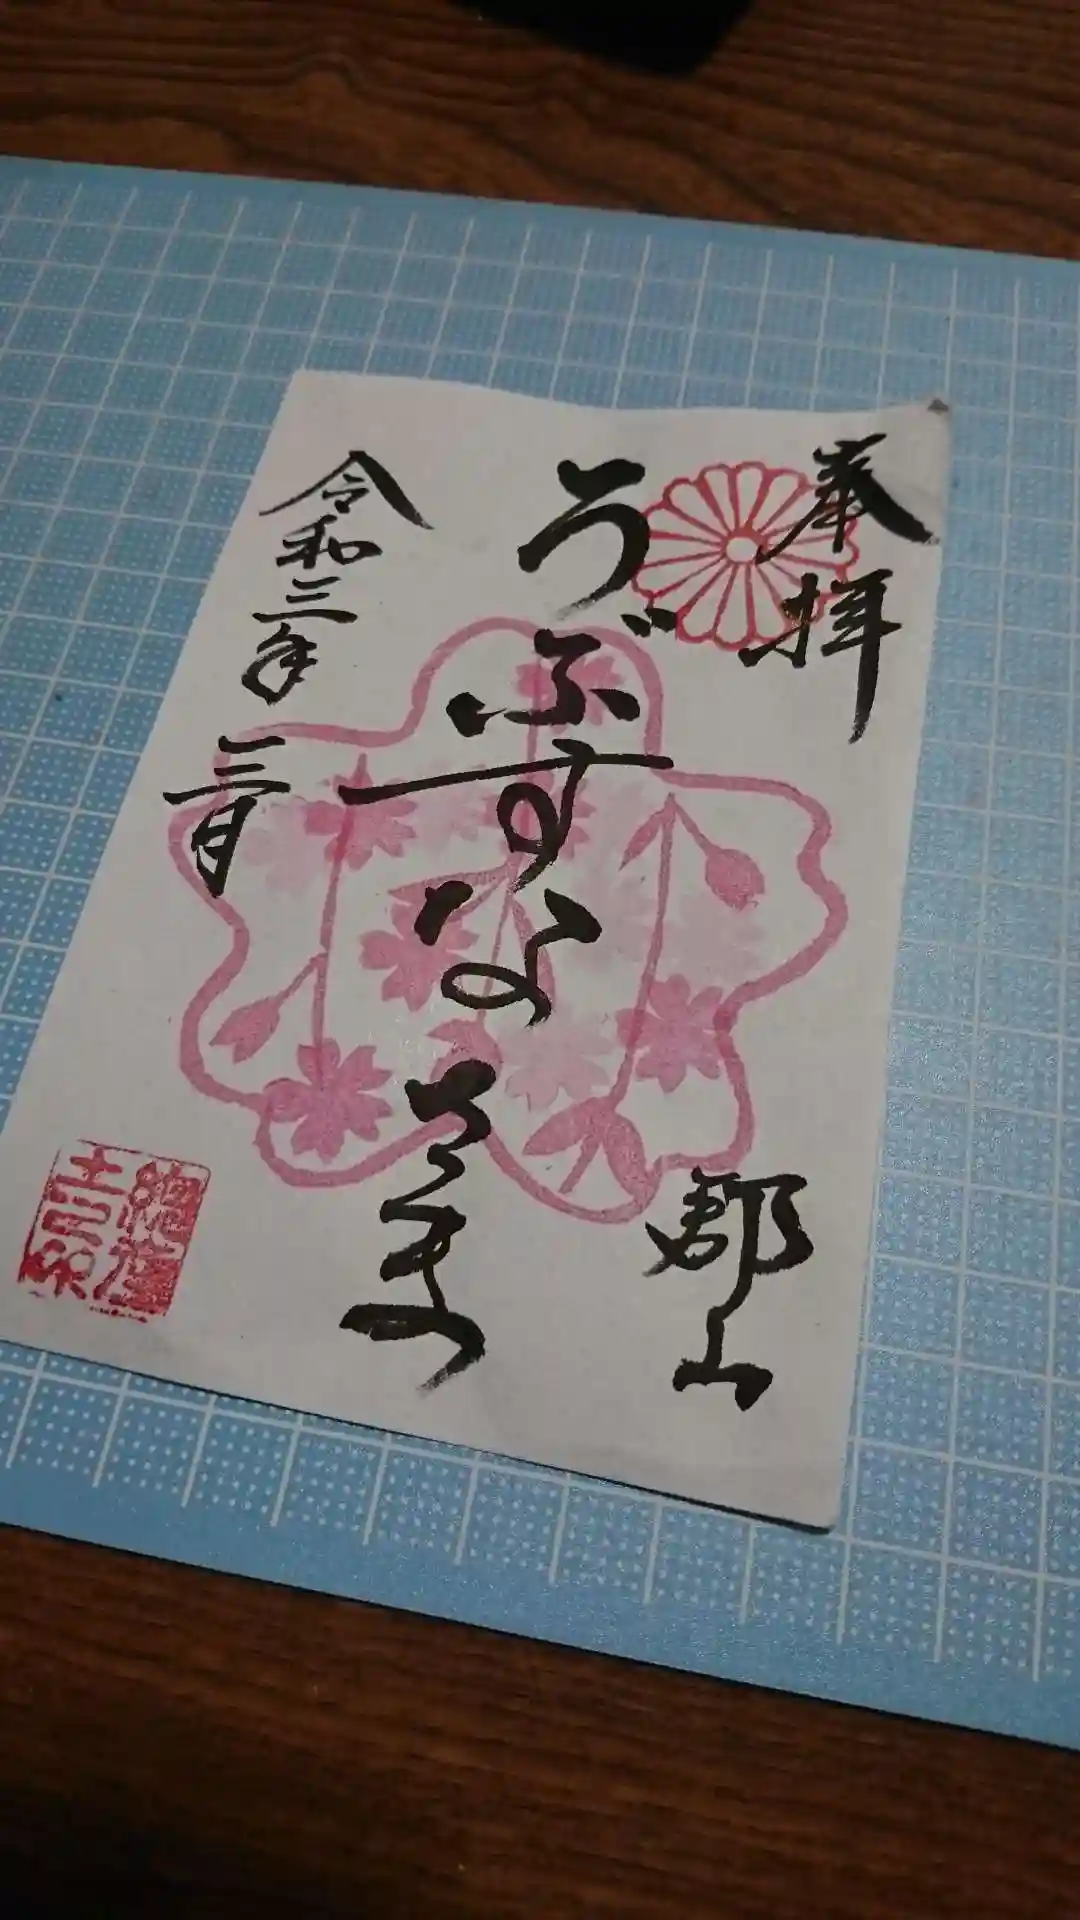 奉拝
郡山
うぶすなさま
令和三年三月